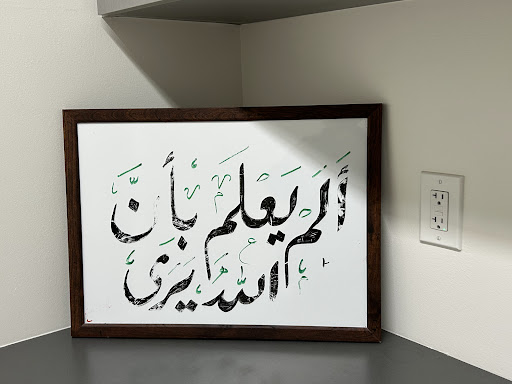 ألم يعلم بأنّ
الله يرى